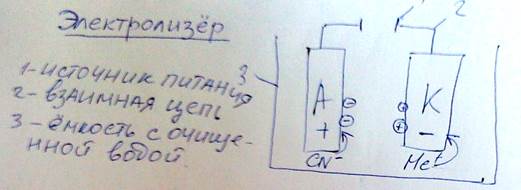 Электролизёр
1-источник питания
2-взаимная цепь
3-ёмкость с очище-
нной водой.
1 2
3
А К
+ -
CN⁻ Me⁺